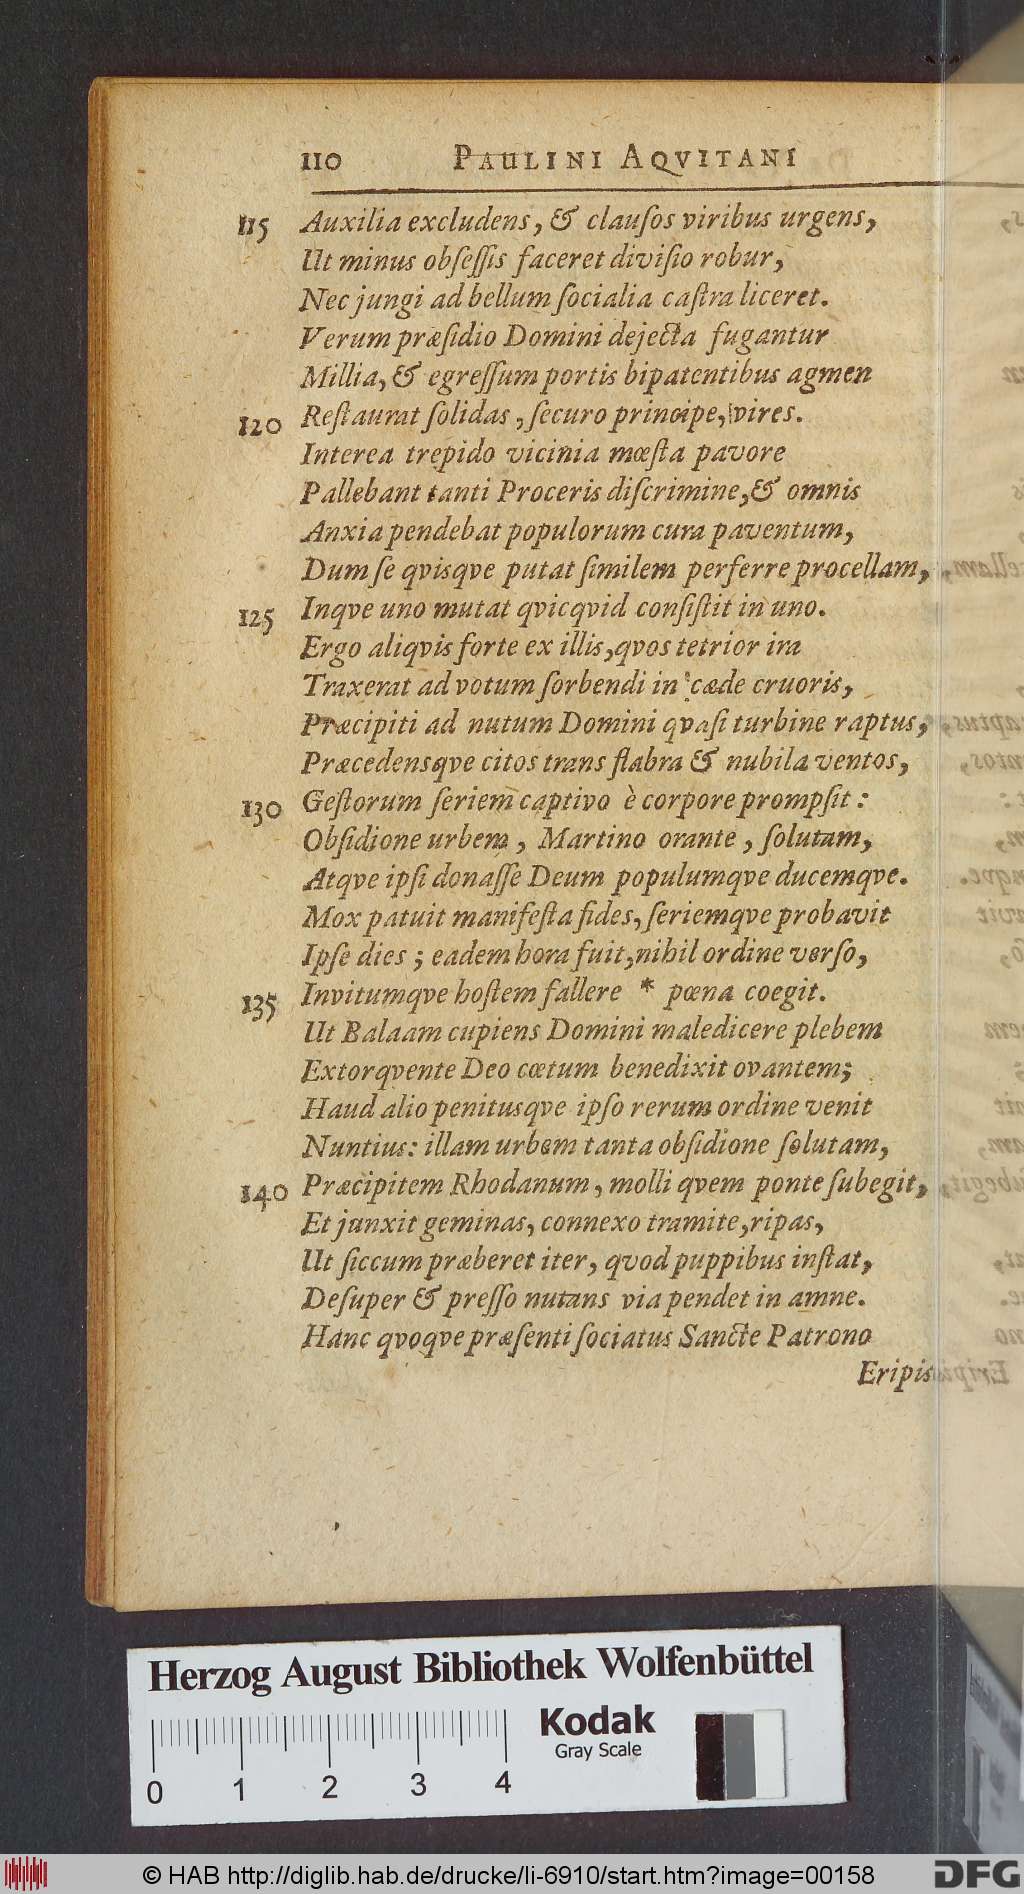 110 PAULINI AQVITANI
115 Auxilia excludens, & clauſos viribus urgens,
Ut minus obſeſſis faceret diviſio robur,
Nec jungi ad bellum ſocialia caſtra liceret.
Verum præſidio Domini dejecta fugantur
Millia, & egreſſum portis bipatentibus agmen
120 Reſtaurat ſolidas, ſecuro principe, vires.
Interea trepido vicinia mœſta pavore
Pallebant tanti Proceris diſcrimine, & omnis
Anxia pendebat populorum cura paventum,
Dum ſe qviſqve putat ſimilem perferre procellam,
125 Inqve uno mutat qvicqvid conſiſtit in uno.
Ergo aliqvis forte ex illis, qvos tetrior ira
Traxerat ad votum ſorbendi in cæde cruoris,
Præcipiti ad nutum Domini qvaſi turbine raptus,
Præcedensqve citos trans flabra & nubila ventos,
130 Geſtorum ſeriem captivo è corpore prompſit:
Obſidione urbem, Martino orante, ſolutam,
Atqve ipſi donaſſe Deum populumqve ducemqve.
Mox patuit manifeſta fides, ſeriemqve probavit
Ipſe dies; eadem hora fuit, nihil ordine verſo,
135 Invitumqve hoſtem fallere * pœna coegit.
Ut Balaam cupiens Domini maledicere plebem
Extorqvente Deo cœtum benedixit ovantem;
Haud alio penitusqve ipſo rerum ordine venit
Nuntius: illam urbem tanta obſidione ſolutam,
140 Præcipitem Rhodanum, molli qvem ponte ſubegit,
Et junxit geminas, connexo tramite, ripas,
Ut ſiccum præberet iter, qvod puppibus inſtat,
Deſuper & preſſo nutans via pendet in amne.
Hanc qvoqve præſenti ſociatus Sancte Patrono
Eripis
Herzog August Bibliothek Wolfenbüttel
Kodak
Gray Scale
0 1 2 3 4
© HAB http://diglib.hab.de/drucke/li-6910/start.htm?image=00158
DFG